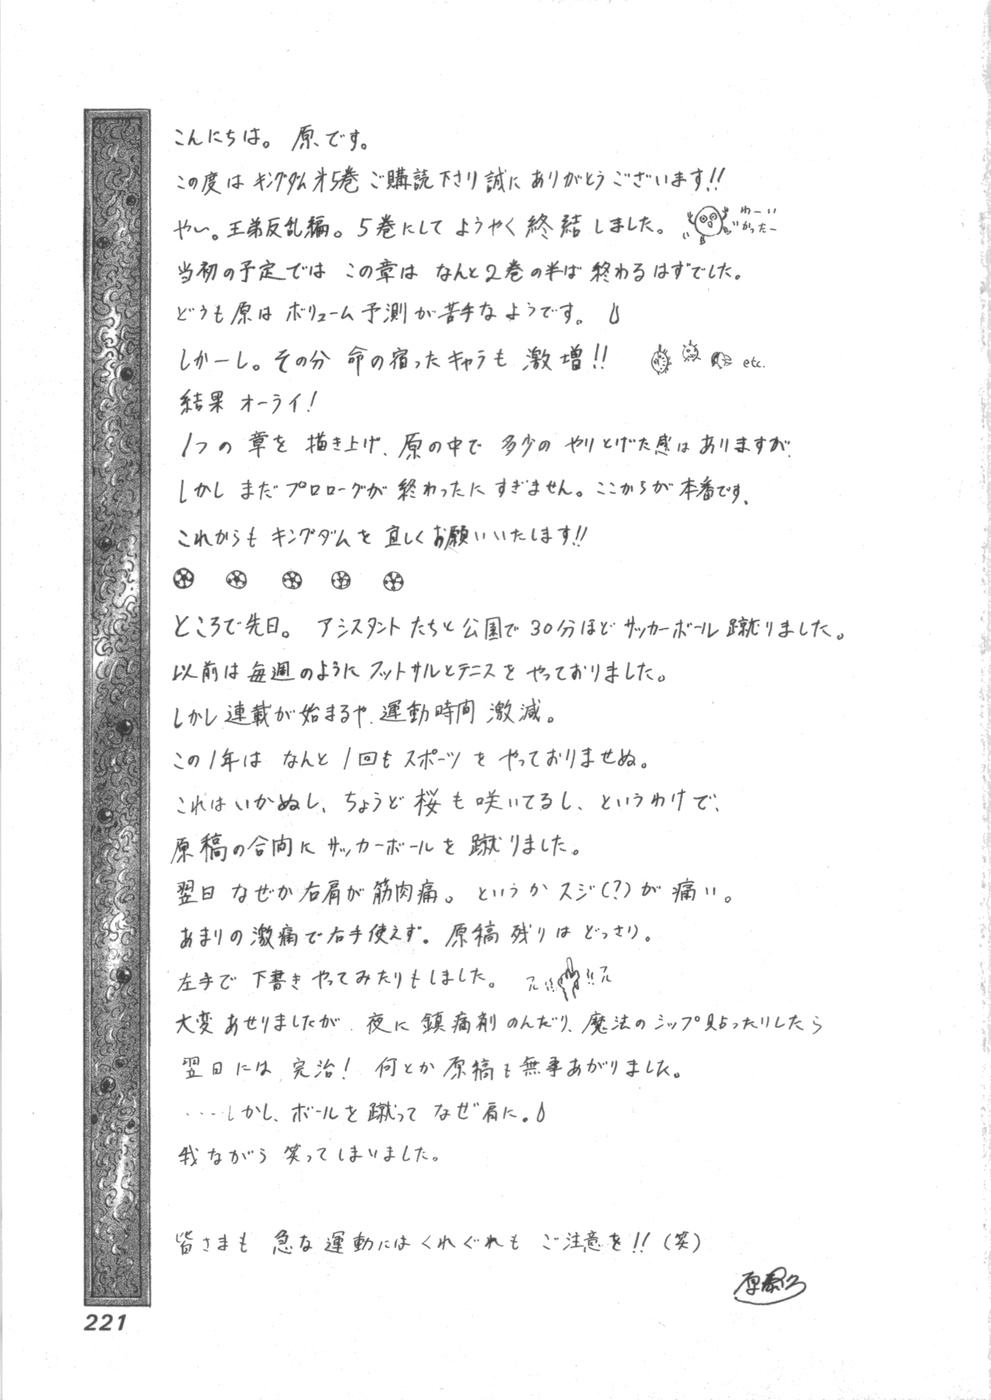 こんにちは。 原です。
この度は キングダム第5巻 ご購読下さり誠に ありがとうございます!!
やい。王弟反乱編。5巻にして ようやく 終結 しました。 わーい かったー
当初の予定では この章は なんと2巻の半ば 終わる はずでした。
どうも 原は ボリューム予測が 苦手な ようです。
しかーし。その分 命の宿ったキャラも 激増!! etc.
結果 オーライ!
1つの 章を 描き上げ、原の中で 多少の やりとげた感は ありますが、
しかし まだ プロローグが 終わったに すぎません。ここからが 本番です、
これからも キングダムを 宜しくお願いいたします!!
ところで先日。 アシスタント たちと 公園で 30分ほど サッカーボール 蹴りました。
以前は 毎週のように フットサルとテニスを やっておりました。
しかし 連載が 始まるや、運動時間 激減。
この1年は なんと 1回も スポーツ を やっておりませぬ。
これは いかぬし、ちょうど 桜も 咲いてるし、というわけで、
原稿の合間に サッカーボールを 蹴りました。
翌日 なぜか 右肩が 筋肉痛。 というか スジ(?)が 痛い。
あまりの 激痛で 右手使えず。 原稿 残りは どっさり。
左手で 下書き やってみたりもしました。 ブル!! !!ブル
大変 あせりましたが、夜に 鎮痛剤 のんだり、魔法の シップ 貼ったりしたら
翌日には 完治! 何とか 原稿も 無事あがりました。
‥‥しかし、ボールを 蹴って なぜ 肩に。
我ながら 笑って しまいました。
皆さまも 急な 運動には くれぐれも ご注意を!!(笑)
原泰久
221